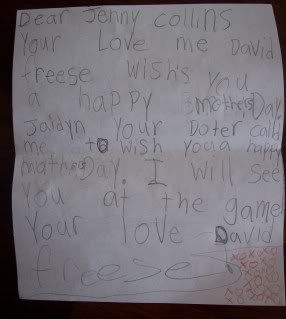 Dear Jenny collins
Your Love me David
freese wish's you
a happy mothersDay,
Jaidyn Your Doter calld
me to wish you a happy
mathersDay. I will see
you at the game
Your love David
freese
xoxoxo